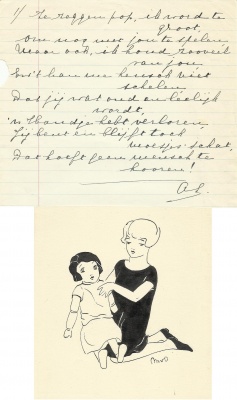 1/ Ze zeggen pop, ik word te
groot,
Om nog met jou te spelen
Maar ook, ik houd zooveel
van jou,
En 't kan me heusch niet
schelen
Dat jij wat oud en leelijk
wordt,
'n Handje hebt verloren,
Jij bent en blijft toch
moesjes' schat,
Dat hoeft geen mensch te
hooren!